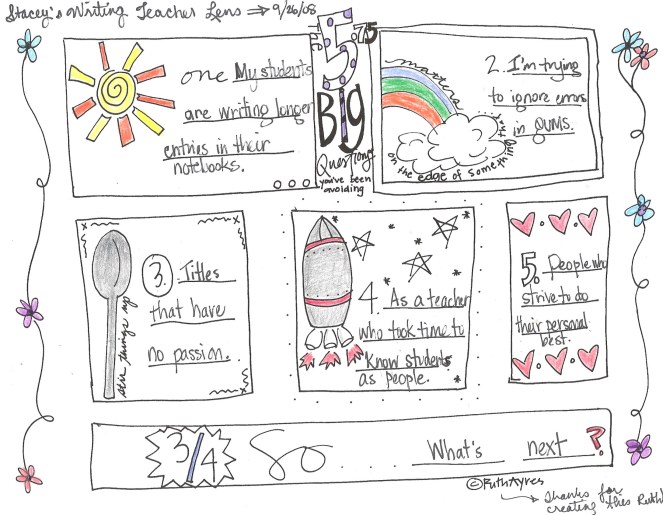 Stacey's Writing Teacher Lens → 9/26/08
5.75
Big
Questions
you've been
avoiding
one My students
are writing longer
entries in their
notebooks.
mantra
on the edge of something
2. I'm trying
to ignore errors
in QWMS.
stir things up
3. Titles
that have
no passion.
4. As a teacher
who took time to
know students
as people.
5. People who
strive to do
their personal
best.
3/4 So... What's next?
©RuthAyres
→ Thanks for
creating this Ruth!